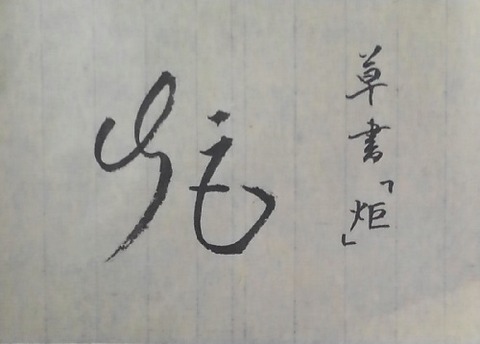 炬
草書「炬」